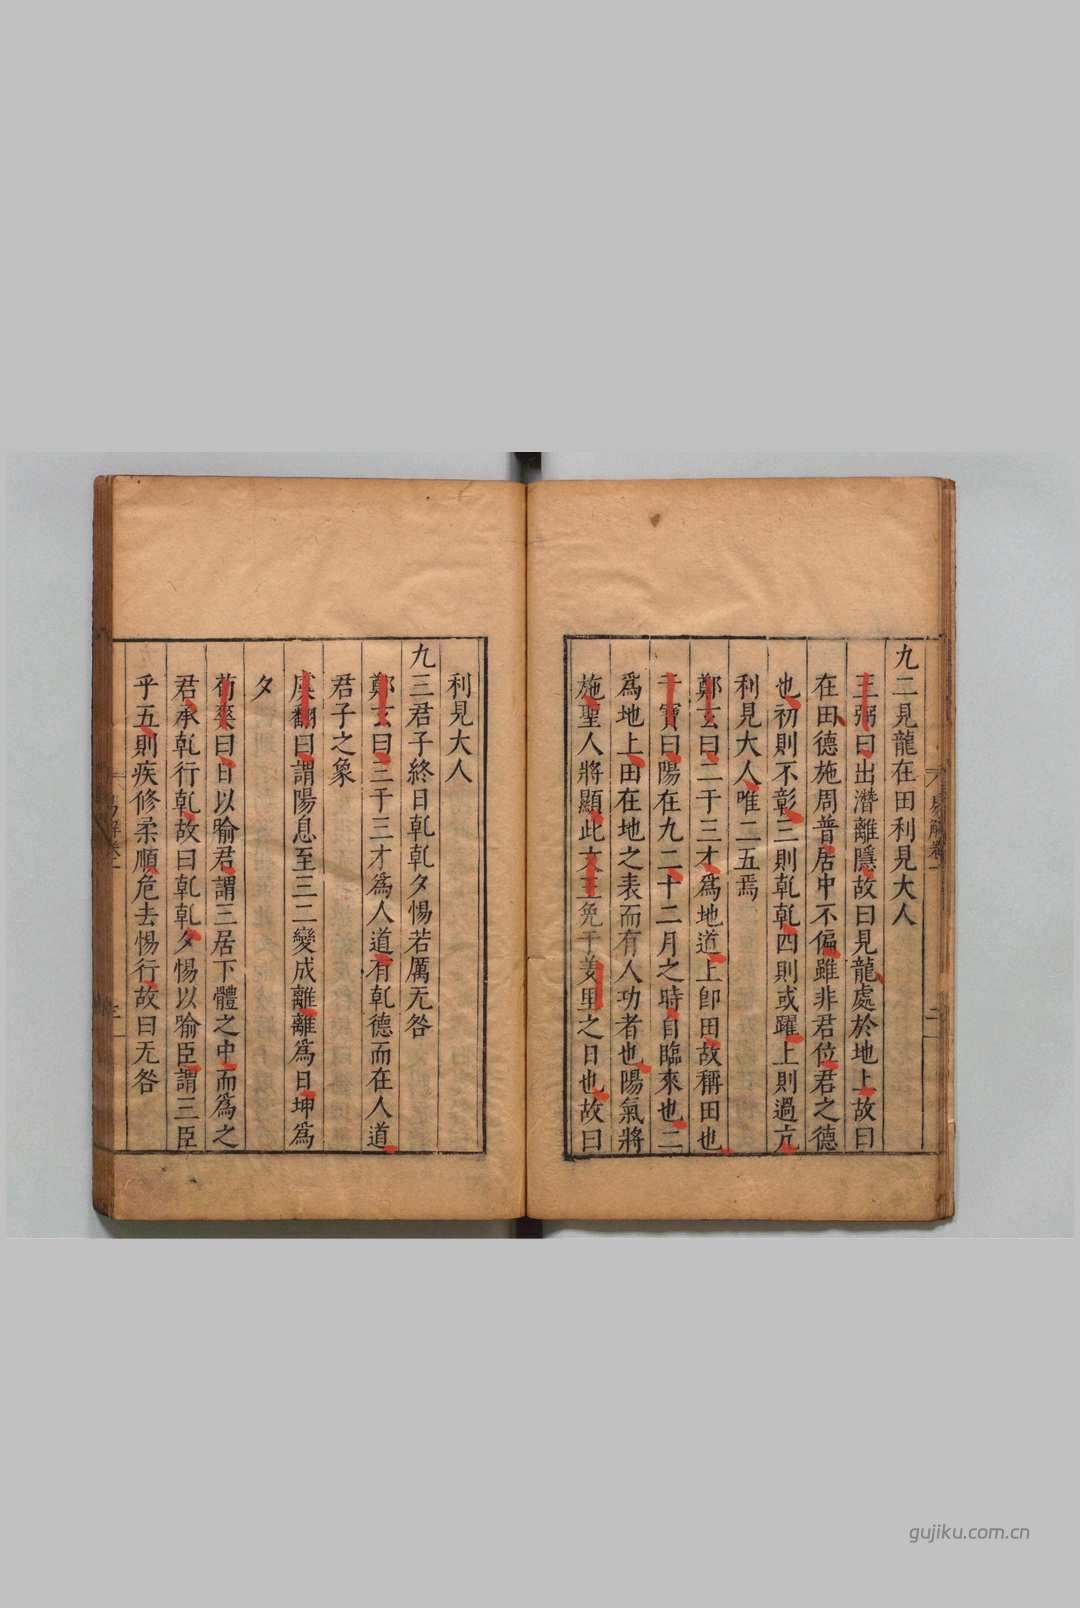 九二見龍在田利見大人
王弼曰出潛離隱故曰見龍處於地上故曰
在田德施周普居中不偏雖非君位君之德
也初則不彰三則乾乾四則或躍上則過亢
利見大人唯二五焉
鄭玄曰二于三才爲地道上卽田故稱田也
干寶曰陽在九二十二月之時自臨來也二
爲地上田在地之表而有人功者也陽氣將
施聖人將顯此文王免于羑里之日也故曰
利見大人
九三君子終日乾乾夕惕若厲无咎
鄭玄曰三于三才爲人道有乾德而在人道
君子之象
虞翻曰謂陽息至三二變成離離爲日坤爲
夕
荀爽曰日以喻君謂三居下體之中而爲之
君承乾行乾故曰乾乾夕惕以喻臣謂三臣
乎五則疾修柔順危去惕行故曰无咎
易解卷一
二
易解卷一
三
gujiku.com.cn